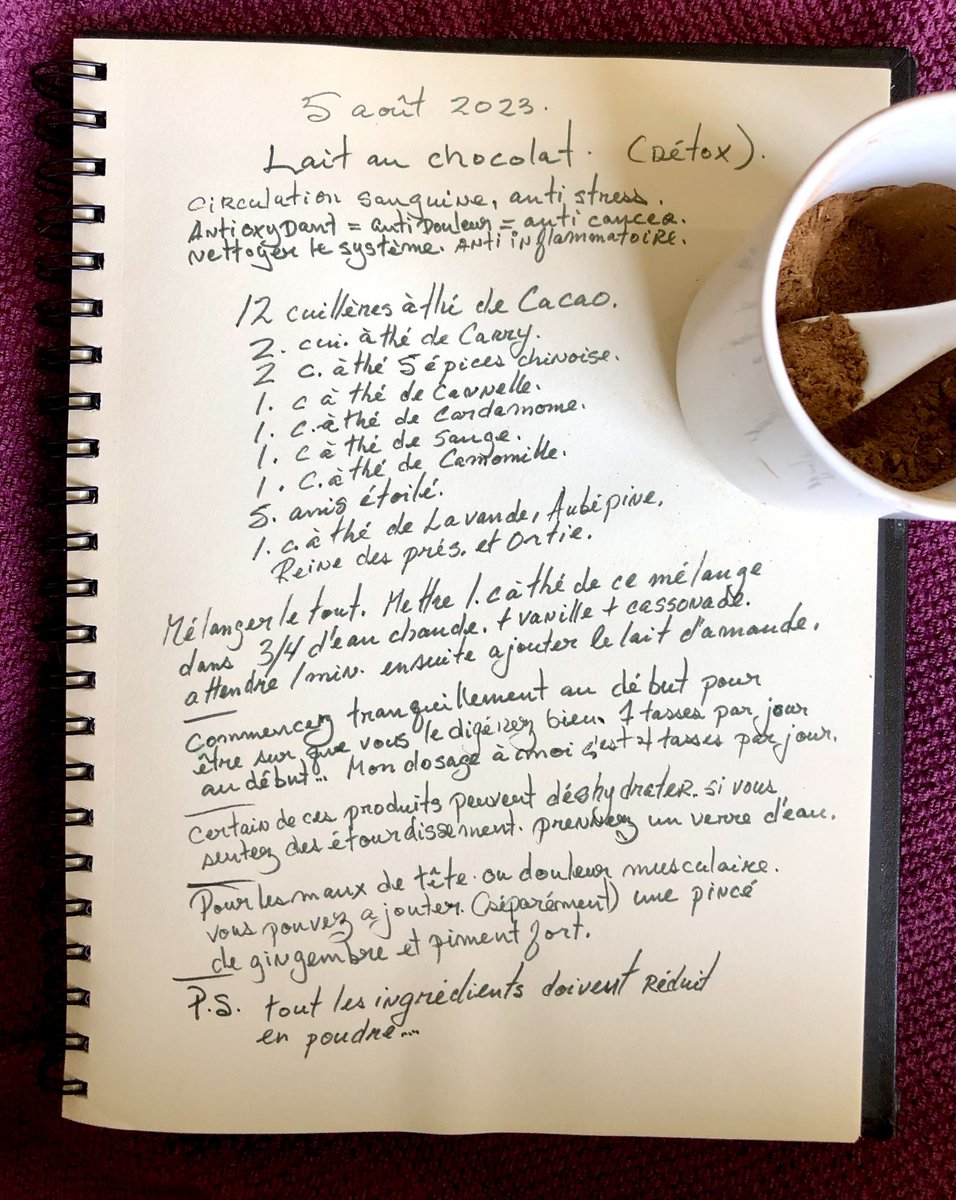 5 août 2023.
Lait au chocolat. (Détox).
circulation sanguine, anti stress.
Antioxydant = anti Douleur = anti cancer.
Nettoyer le système. Anti inflammatoire.
12 cuillères à thé de Cacao.
2. cui. à thé de Carry.
2 c. à thé 5 épices chinoise.
1. c à thé de Cannelle.
1. c. à thé de Cardamome.
1. c à thé de Sauge.
1. C. à thé de Camomille.
5. anis étoilé.
1. c. à thé de Lavande, Aubépine,
Reine des prés. et Ortie.
Mélanger le tout. Mettre 1. c à thé de ce mélange
dans 3/4 d'eau chaude. + vanille + cassonade.
attendre 1 min. ensuite ajouter le lait d'amande.
Commencez tranquillement au début pour
être sur que vous le digérez bien. 1 tasses par jour
au début... Mon dosage à moi c'est 4 tasses par jour.
Certain de ces produits peuvent déshydrater. si vous
sentez des étourdissement. prennez un verre d'eau.
Pour les maux de tête ou douleur musculaire.
vous pouvez ajouter (séparément) une pincé
de gingembre et piment fort.
P.S. tout les ingrédients doivent réduit
en poudre...